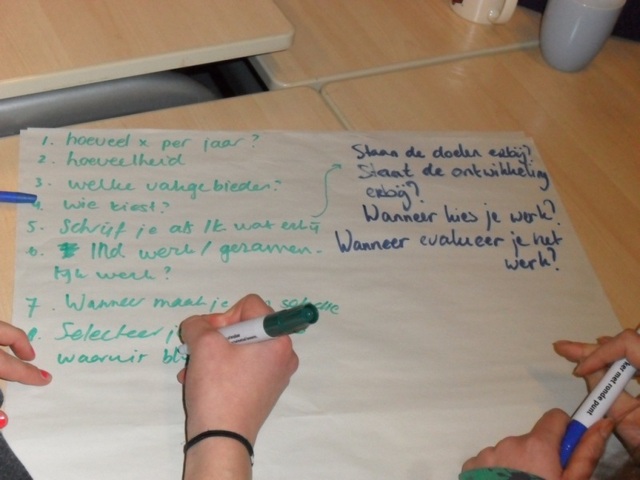 1. hoeveel x per jaar?
2. hoeveelheid
3. welke vakgebieden?
4. wie kiest?
5. Schrijf je als Ik wat erbij
6. Ind werk / gezamen-
lijk werk?
7. Wanneer maak je selectie
8. Selecteer
waaruit bl
Staan de doelen erbij?
Staat de ontwikkeling
erbij?
Wanneer kies je werk?
Wanneer evalueer je het
werk?
ker met ronde punt